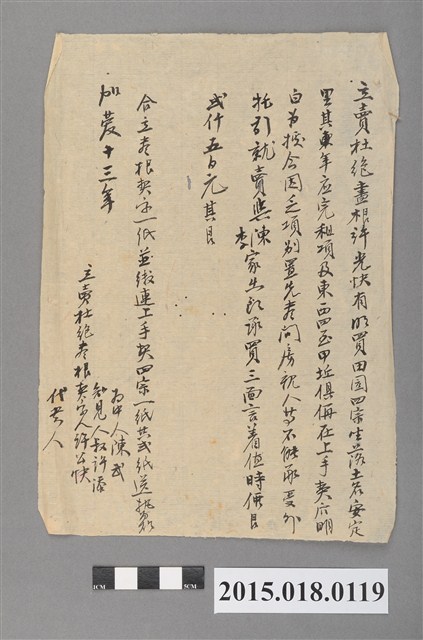 立賣杜絕盡根許光快有明買田園四宗坐落土名安定
里其東年應完租項及東西四至甲坵俱在上手契內明
白為據今因乏項別置先盡問房親人等不能承受外
托引就賣與陳家出頭承買三面言着值時價艮
李
貳仟五百元其艮
合立杜根契字一紙並繳連上手契四宗一紙共貳紙送執
加慶十三年
為中人陳武
知見人叔許漆
立賣杜絕盡根契字人許公快
代書人
1CM
5CM
2015.018.0119